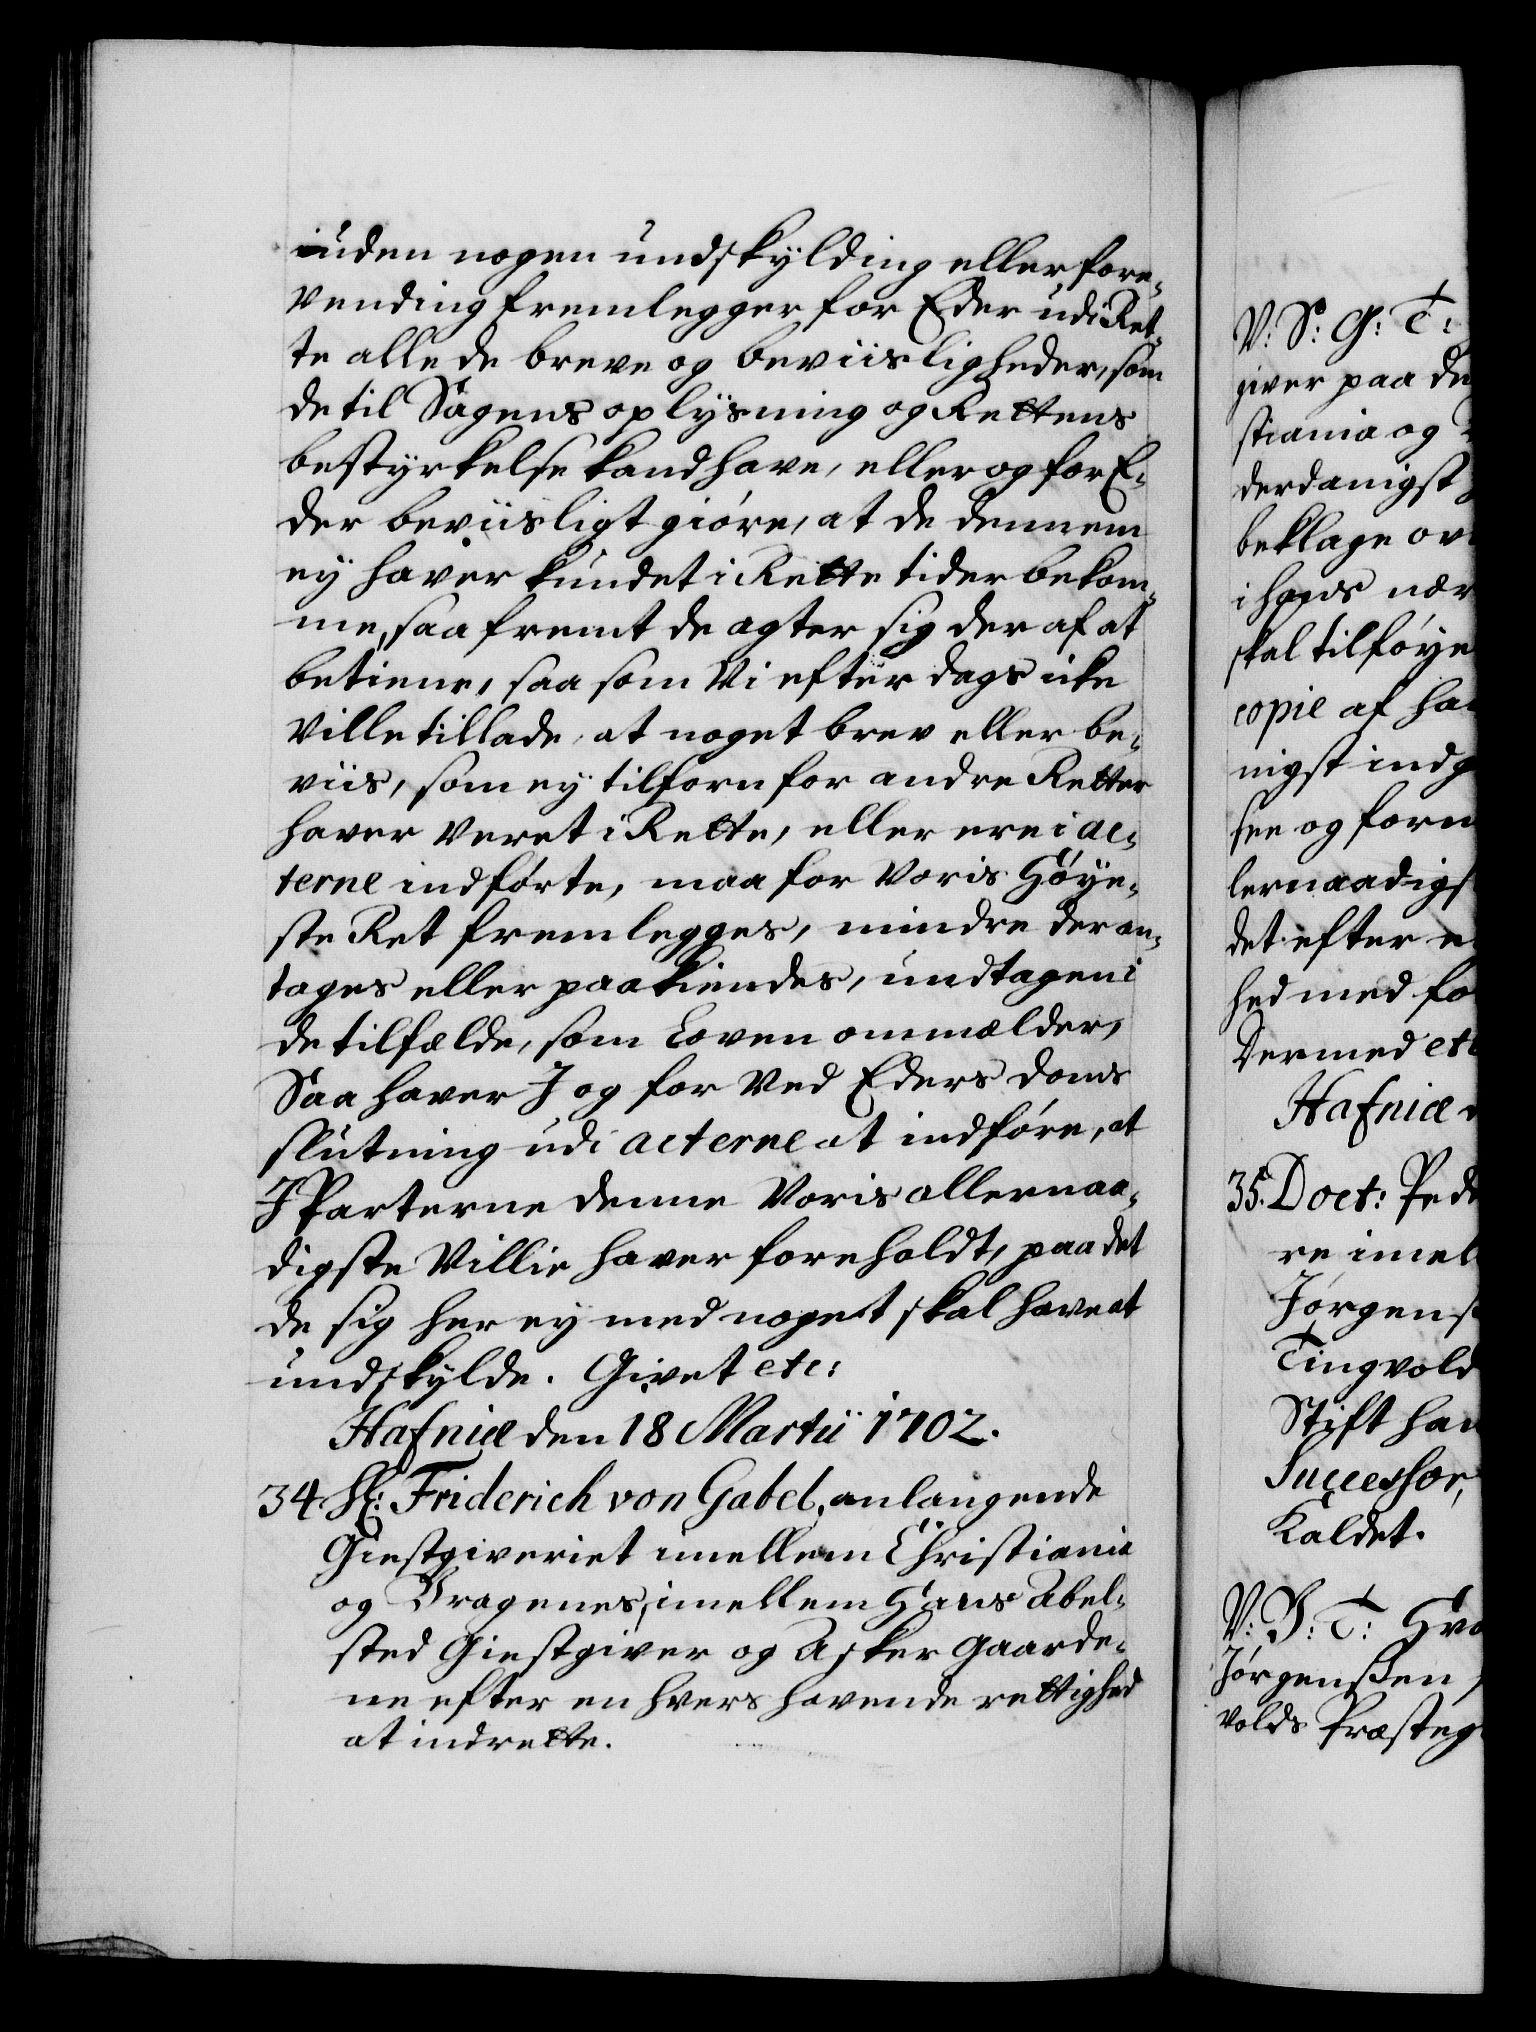 uden nogen undskylding eller fore-
vending fremlegger for Eder udi Ret-
te alle de breve og beviisligheder, som
de til Sagens oplysning og Rettens
bestyrkelse kand have, eller og for E-
der beviisligt giøre, at de dennem
ey haver kundet i Rette tider bekom-
me, saa fremt de agter sig der af at
betiene, saa som Vi efter dags icke
Ville tillade, at noget brev eller be-
viis, som ey tilforn for andre Retter
haver veret i Rette, eller ere i ac-
terne indførte, maa for Voris Høye-
ste Ret fremlegges, mindre der an-
tages eller paakiendes, undtagen i
de tilfælde, som Loven ommælder,
Saa haver I og for ved Eders doms
slutning udi acterne at indføre, at
I Parterne denne Voris allernaa-
digste Villie haver foreholdt, paa det
de sig her ey med noget skal have at
undskylde. Givet etc:
Hafniæ den 18 Martii 1702.
34. Hr: Friderich von Gabel, anlangende
Giestgiveriet imellem Christiania
og Bragenes, imellem Hans Abel-
sted Giestgiver og Asker Gaarde-
ne efter en hvers havende rettighed
at indrette.
V: S: G: T:
giver paa
stiania og
derdanigst
beklage
i hans nær
skal tilføye
copie af
nigst
see og
lernaadigst
det efter
hed med
Dermed etc
Hafniæ
35. Doct:
re
Jørgens
Tingvold
Stift
Successor,
Kaldet.
V: B: T:
Jørgenssen
volds Præsteg